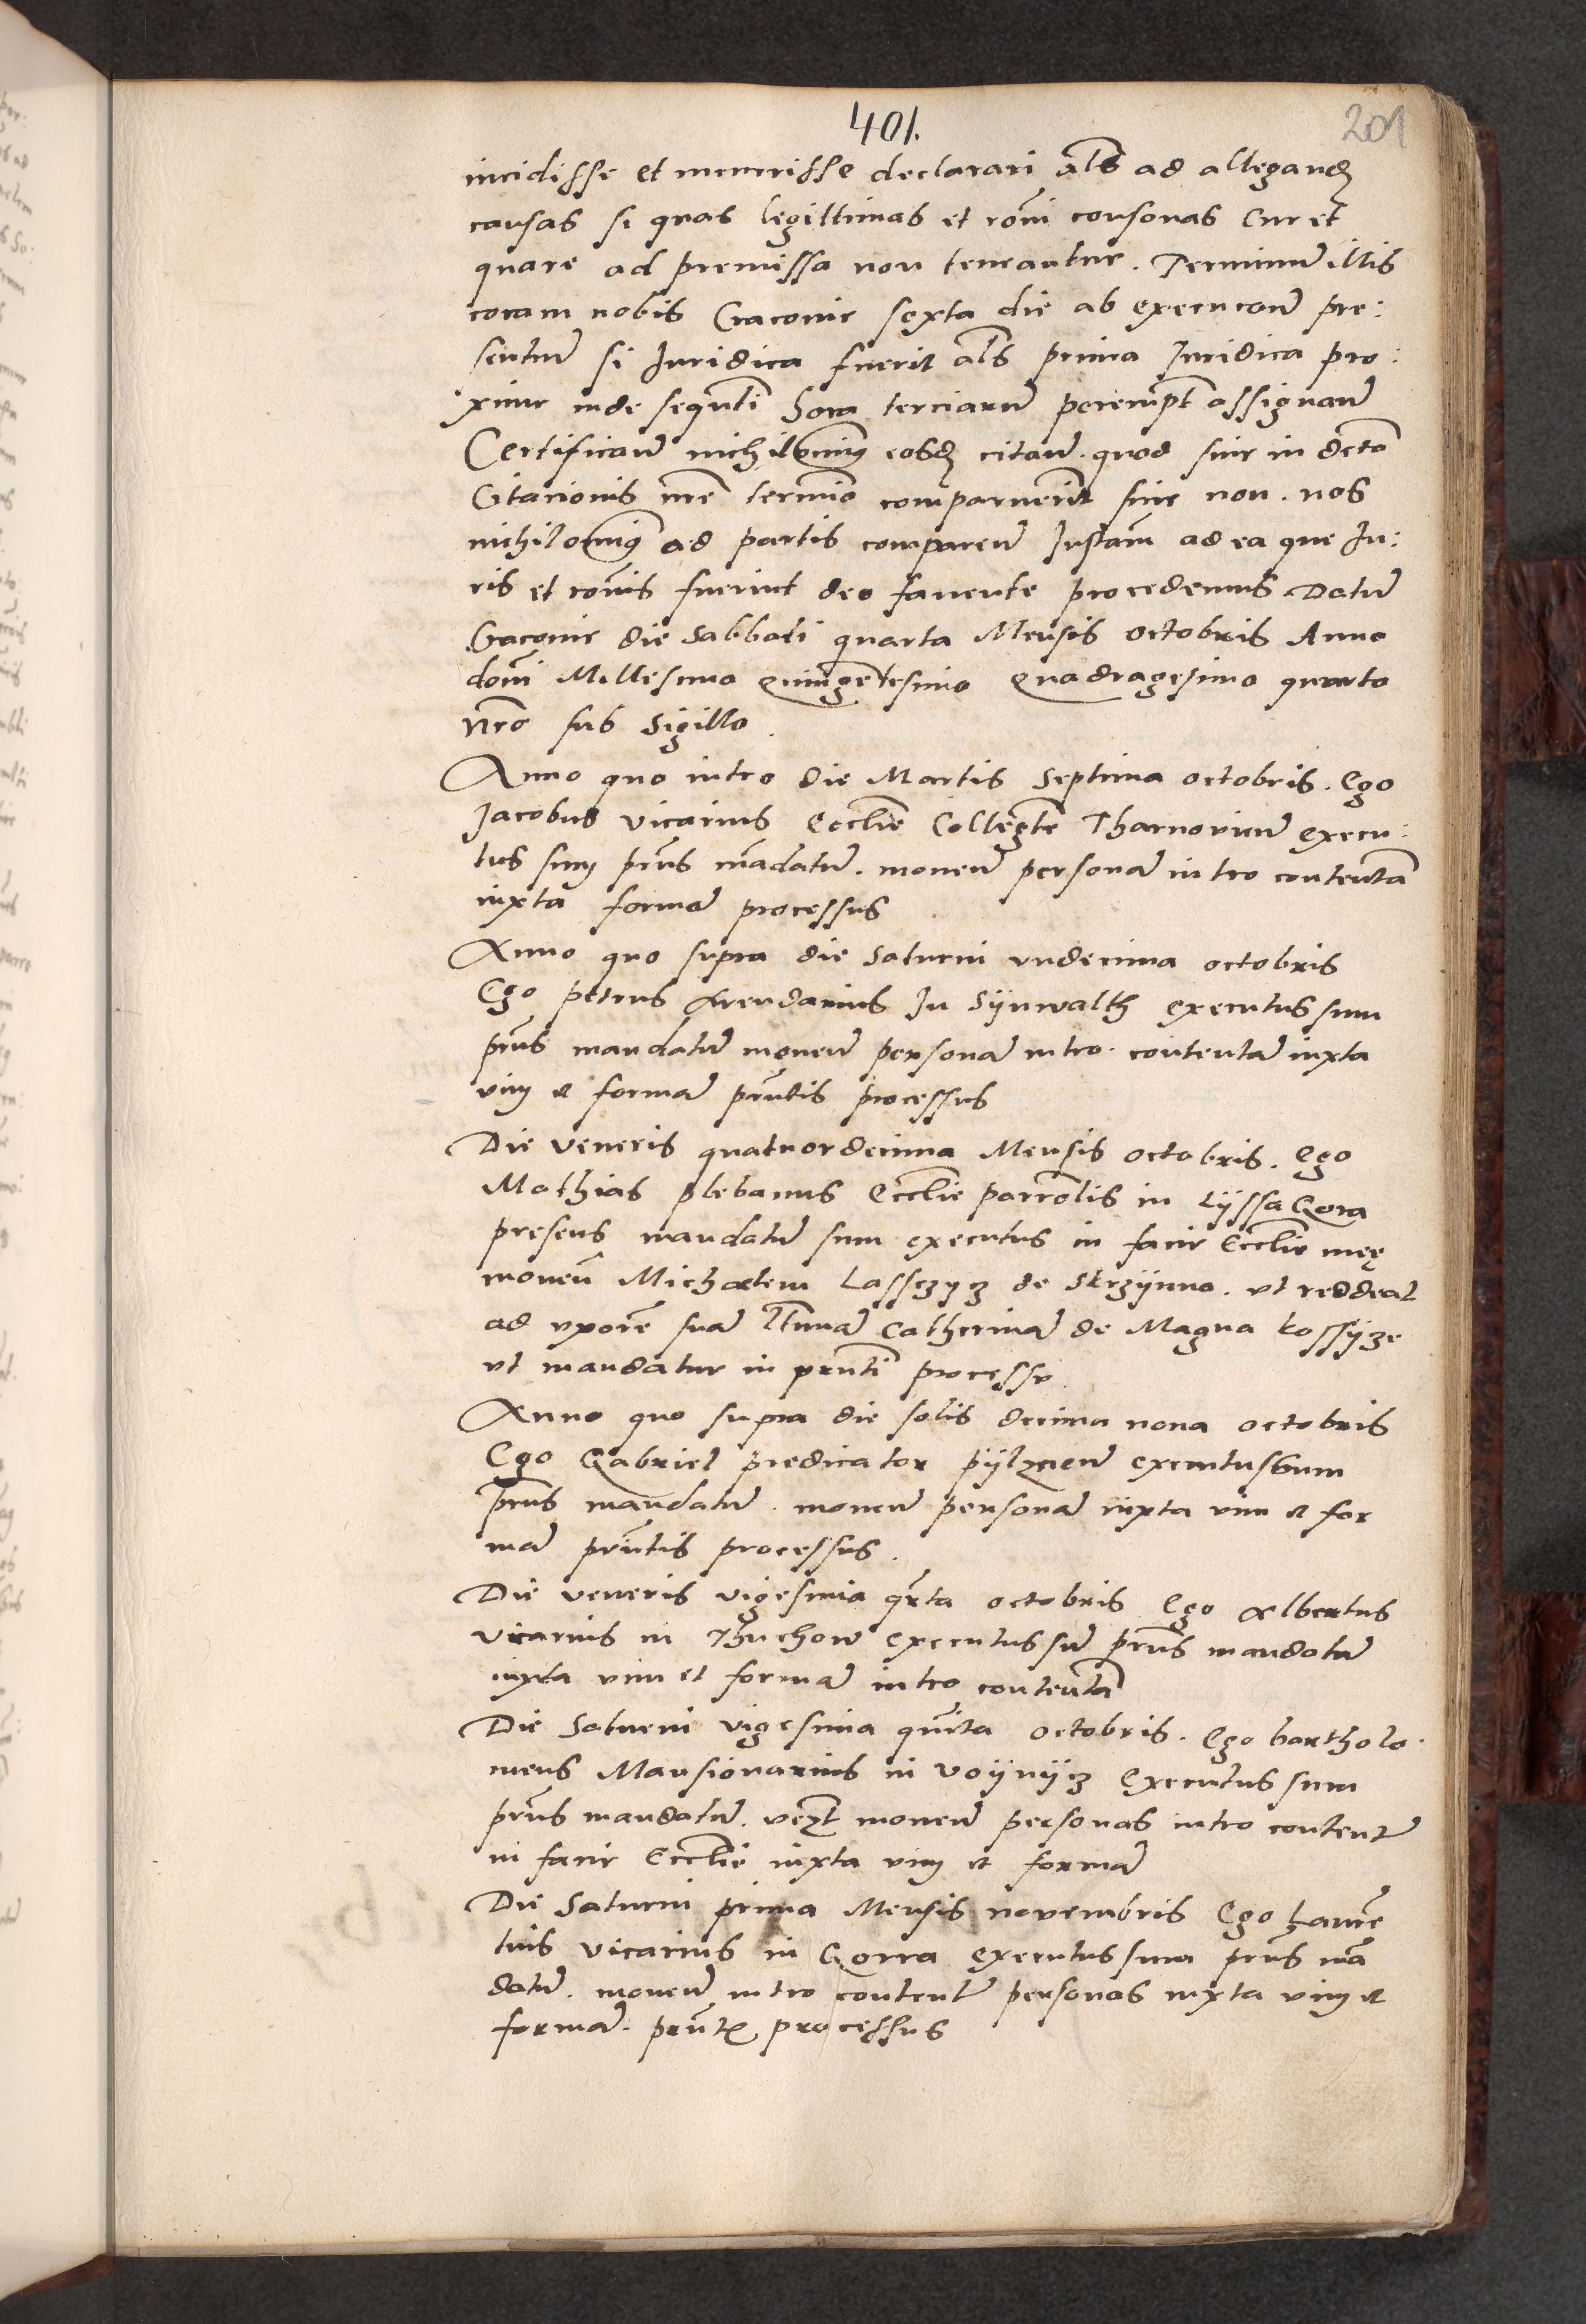 401.
201
incidisse et incurrisse declarari als ad allegand
causas si quas legittimas et roni consonas Cur et
quare ad premissa non teneantur. Terminum illis
coram nobis Cracovie sexta die ab execucone pre:
sentium si Juridica fuerit als prima Juridica pro:
xime inde sequnti hora terciarum perempt assignam
Certificam nichilominus eosd citam. quod sive in dcto
Citacionis nre termino comparuerint sive non. nos
nichilominus ad partis comparen Instam ad ea que Ju:
ris et ronis fuerint deo favente procedemus Datum
Cracovie die Sabbati quarta Mensis octobris Anno
domi Millesimo Quingentesimo Quadragesimo quarto
nro sub Sigillo.
Anno quo intro die Martis Septima octobris. Ego
Jacobus vicarius Ecclie Collegte Tharnovien execu:
tus sum prns mandatum. monen personam intro contentam
iuxta formam processus
Anno quo supra die Saturni undecima octobris
Ego petrus Arendarius In Synwalth executus sum
prns mandatum monen personam intro. contentam iuxta
vim et formam prntis processus
Die veneris quatuordecima Mensis octobris. Ego
Mathias plebanus Ecclie parrolis in Lyssa Gora
presens mandatum sum executus in facie Ecclie meę
monen Michaelem Lassczycz de Skrzynno. ut reddeat
ad uxorem suam lttimam Catherinam de Magna kossycze
ut mandatur in prnti processu
Anno quo supra die solis decima nona octobris
Ego Gabriel predicator pylznen executus sum
prns mandatum. monen personam iuxta vim et for
mam prntis processus.
Die veneris vigesima qrta octobris Ego Albertus
vicarius in Thuchow executus sum prns mandatum
iuxta vim et formam intro contentam
Die Saturni vigesima quinta octobris. Ego bartholo
meus Mansionarius in voynycz Executus sum
prns mandatum. monen personas intro content
in facie Ecclie iuxta vim et formam
Die Saturni prima Mensis novembris Ego Lauren
tius vicarius in Gorra executus sum prns man
datum. monen intro content personas iuxta vim et
formam. prnt processus